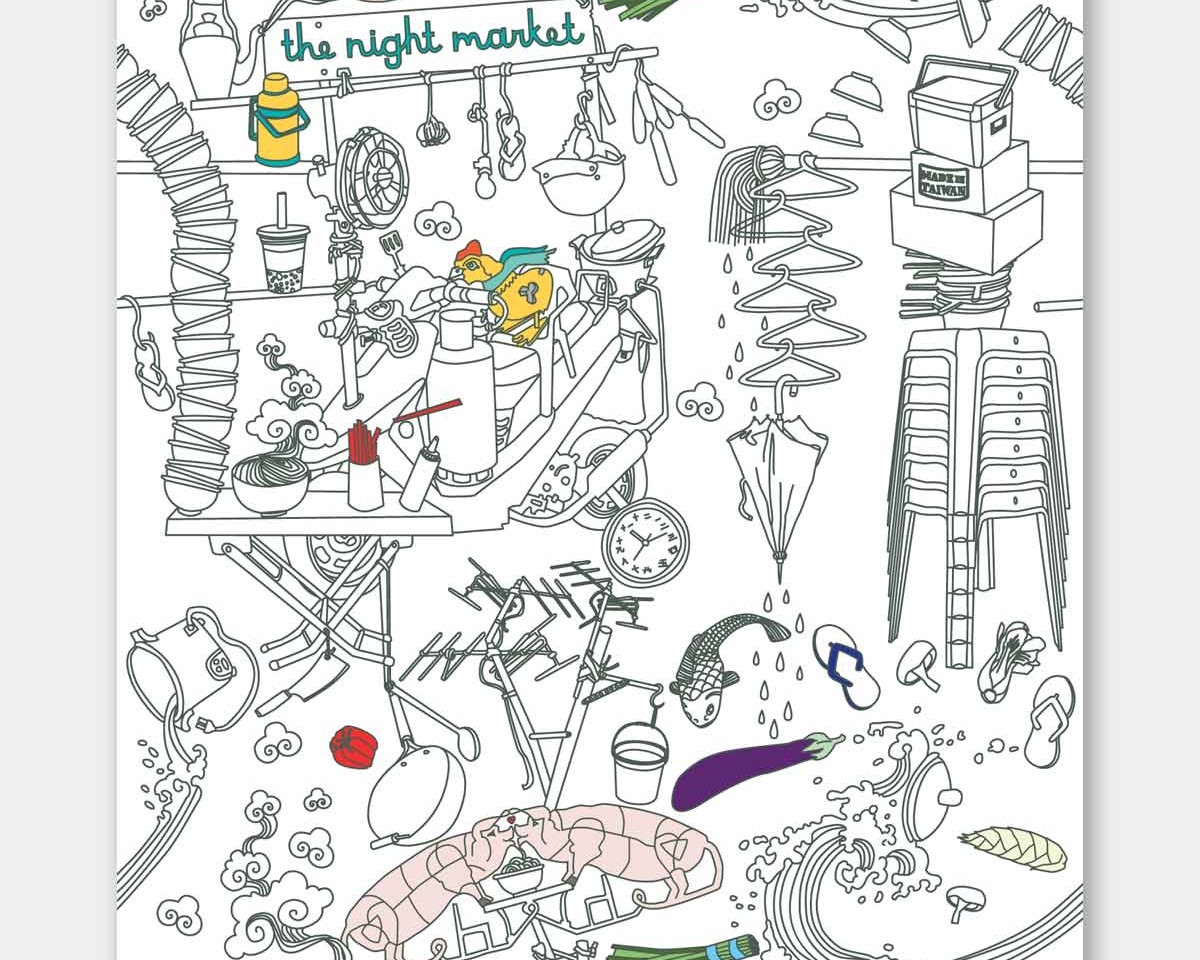 the night market
MADE IN
TAIWAN